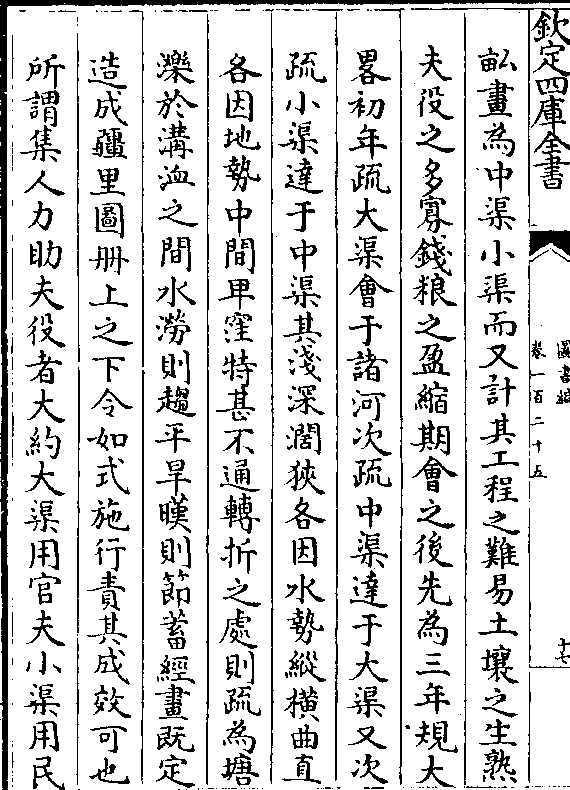 欽定四庫全書
圖書編
卷一百二十五
十七
畝畫為中渠小渠而又計其工程之難易土壤之生熟
夫役之多寡錢粮之盈縮期會之後先為三年規大
畧初年疏大渠會于諸河次疏中渠達于大渠又次
疏小渠達于中渠其淺深濶狹各因水勢縱橫曲直
各因地勢中間卑窪特甚不通轉折之處則疏為塘
濼於溝洫之間水澇則趨平旱暵則節蓄經畫既定
造成疆里圖冊上之下令如式施行責其成效可也
所謂集人力助夫役者大約大渠用官夫小渠用民